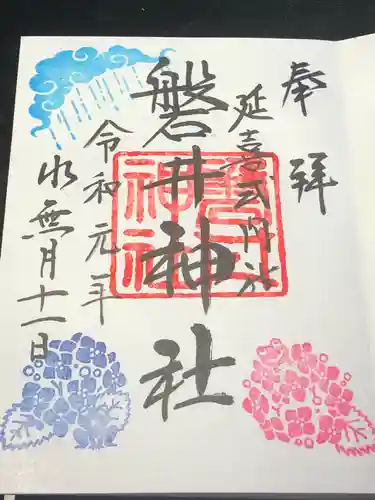 奉拝
延喜式内社
磐井神社
磐井神社
令和元年
水無月十一日